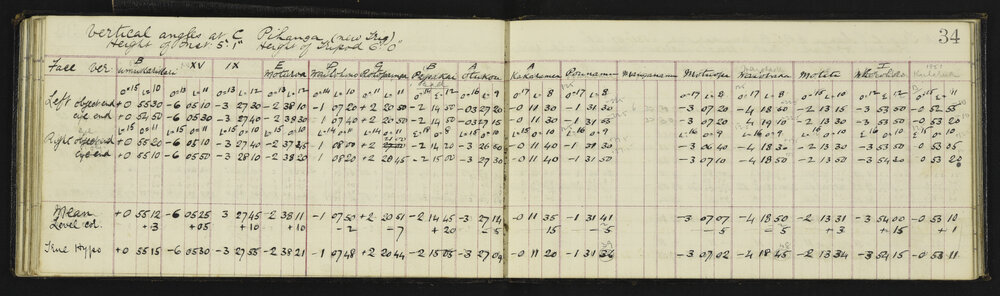 Vertical angles at C Pihanga (new Trig). 34
Height of Inst. 5' 1" Height of Tripod 6' 0"
Face Ver. B XV IX E Moturoa D G B A A Kakaramea Pounami Motuopa Motete I 1851
o"15 L"10 o"13 L"11 o"13 L"12 o"14 L"11 o"14 L"10 o"14 L"11 o"12 o"15 L"9 o"17 L"8 o"16 L"8 o"17 L"8 o"17 L"8 o"16 L"10 o"12 o"15 L"11
Left object end +0 55 30 -6 05 10 -3 27 30 -2 38 10 -1 07 20 +2 20 50 -2 14 50 -03 27 20 -0 11 30 -1 31 30 -3 07 20 -4 18 50 -2 13 15 -3 53 50 -0 52 55
eye end +0 54 50 -6 05 30 -3 27 40 -2 38 30 -1 07 40 +2 20 50 -2 14 50 -03 27 15 -0 11 40 -1 31 55 -3 07 20 -4 19 10 -2 13 30 -3 53 50 -0 53 20
L"15 o"10 L"15 o"11 L"15 o"10 L"15 o"10 L"14 o"11 L"14 o"11 o"8 L"15 o"10 L"16 o"9 L"16 o"9 L"16 o"9 L"16 o"9 L"15 o"10 o"10 L"15 o"10
Right object end +0 55 20 -6 05 10 -3 27 40 -2 37 35 -1 08 00 +2 -2 14 20 -3 26 60 -0 11 30 -1 31 30 -3 06 40 -4 18 30 -2 13 30 -3 53 50 -0 53 05
eye end +0 55 10 -6 05 50 -3 28 10 -2 38 20 -1 08 20 +2 20 45 -2 15 00 -3 27 30 -0 11 40 -1 31 50 -3 07 10 -4 18 50 -2 13 50 -3 54 30 -0 53 20
Mean +0 55 12 -6 05 25 3 27 45 -2 38 11 -1 07 50 +2 20 51 -2 14 45 -3 27 14 -0 11 35 -1 31 41 -3 07 07 -4 18 50 -2 13 31 -3 54 00 -0 53 10
Level cor. +3 +05 +10 +10 -2 -7 +20 -5 15 -5 -5 -5 +3 +15 +1
True Hypo +0 55 15 -6 05 30 -3 27 55 -2 38 21 -1 07 48 +2 20 44 -2 15 05 -3 27 09 -0 11 20 -1 31 36 -3 07 02 -4 18 45 -2 13 34 -3 54 15 -0 53 11